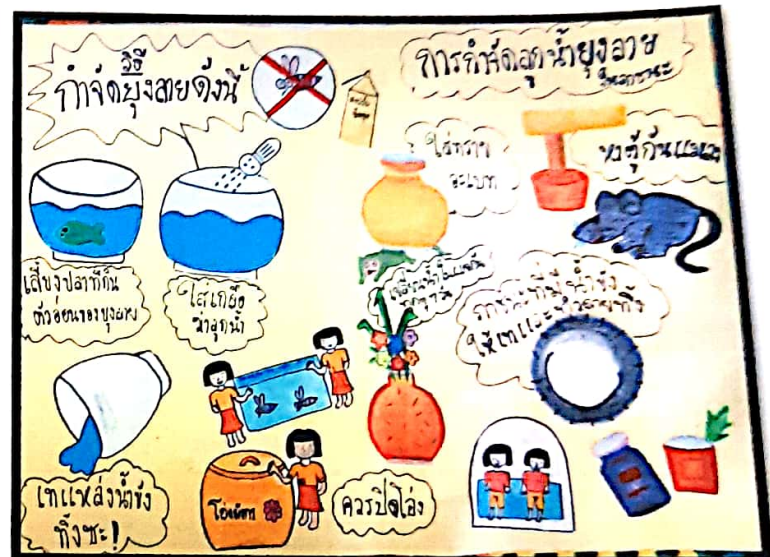 วิธี
กำจัดยุงลายดังนี้
การกำจัดลูกน้ำยุงลาย
ในภาชนะ
ใส่ทราย
อะเบท
ขาตู้กันแมลง
เลี้ยงปลาที่กิน
ตัวอ่อนของยุงลาย
ใส่เกลือ
ฆ่าลูกน้ำ
เปลี่ยนน้ำในแจกัน
ภาชนะที่มีน้ำขัง
ให้เทและทำลายทิ้ง
เทแหล่งน้ำขัง
ทิ้งซะ!
ควรปิดโอ่ง